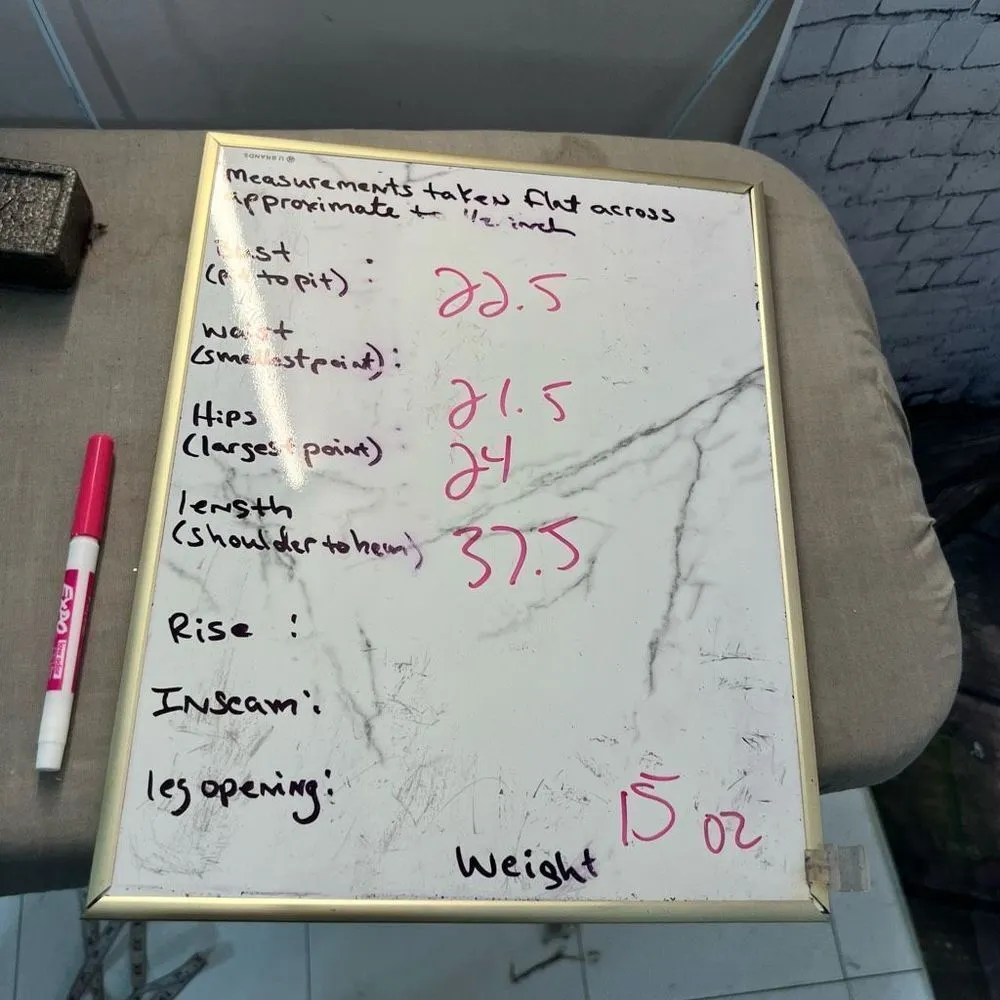 U BRANDS
measurements taken flat across
approximate to 1/2 inch
Bust
(pit to pit) : 22.5
Waist
(smallest point): 21.5
Hips
(largest point) 24
length
(shoulder to hem) 37.5
Rise :
Inseam:
leg opening:
15 oz
Weight
EXPO